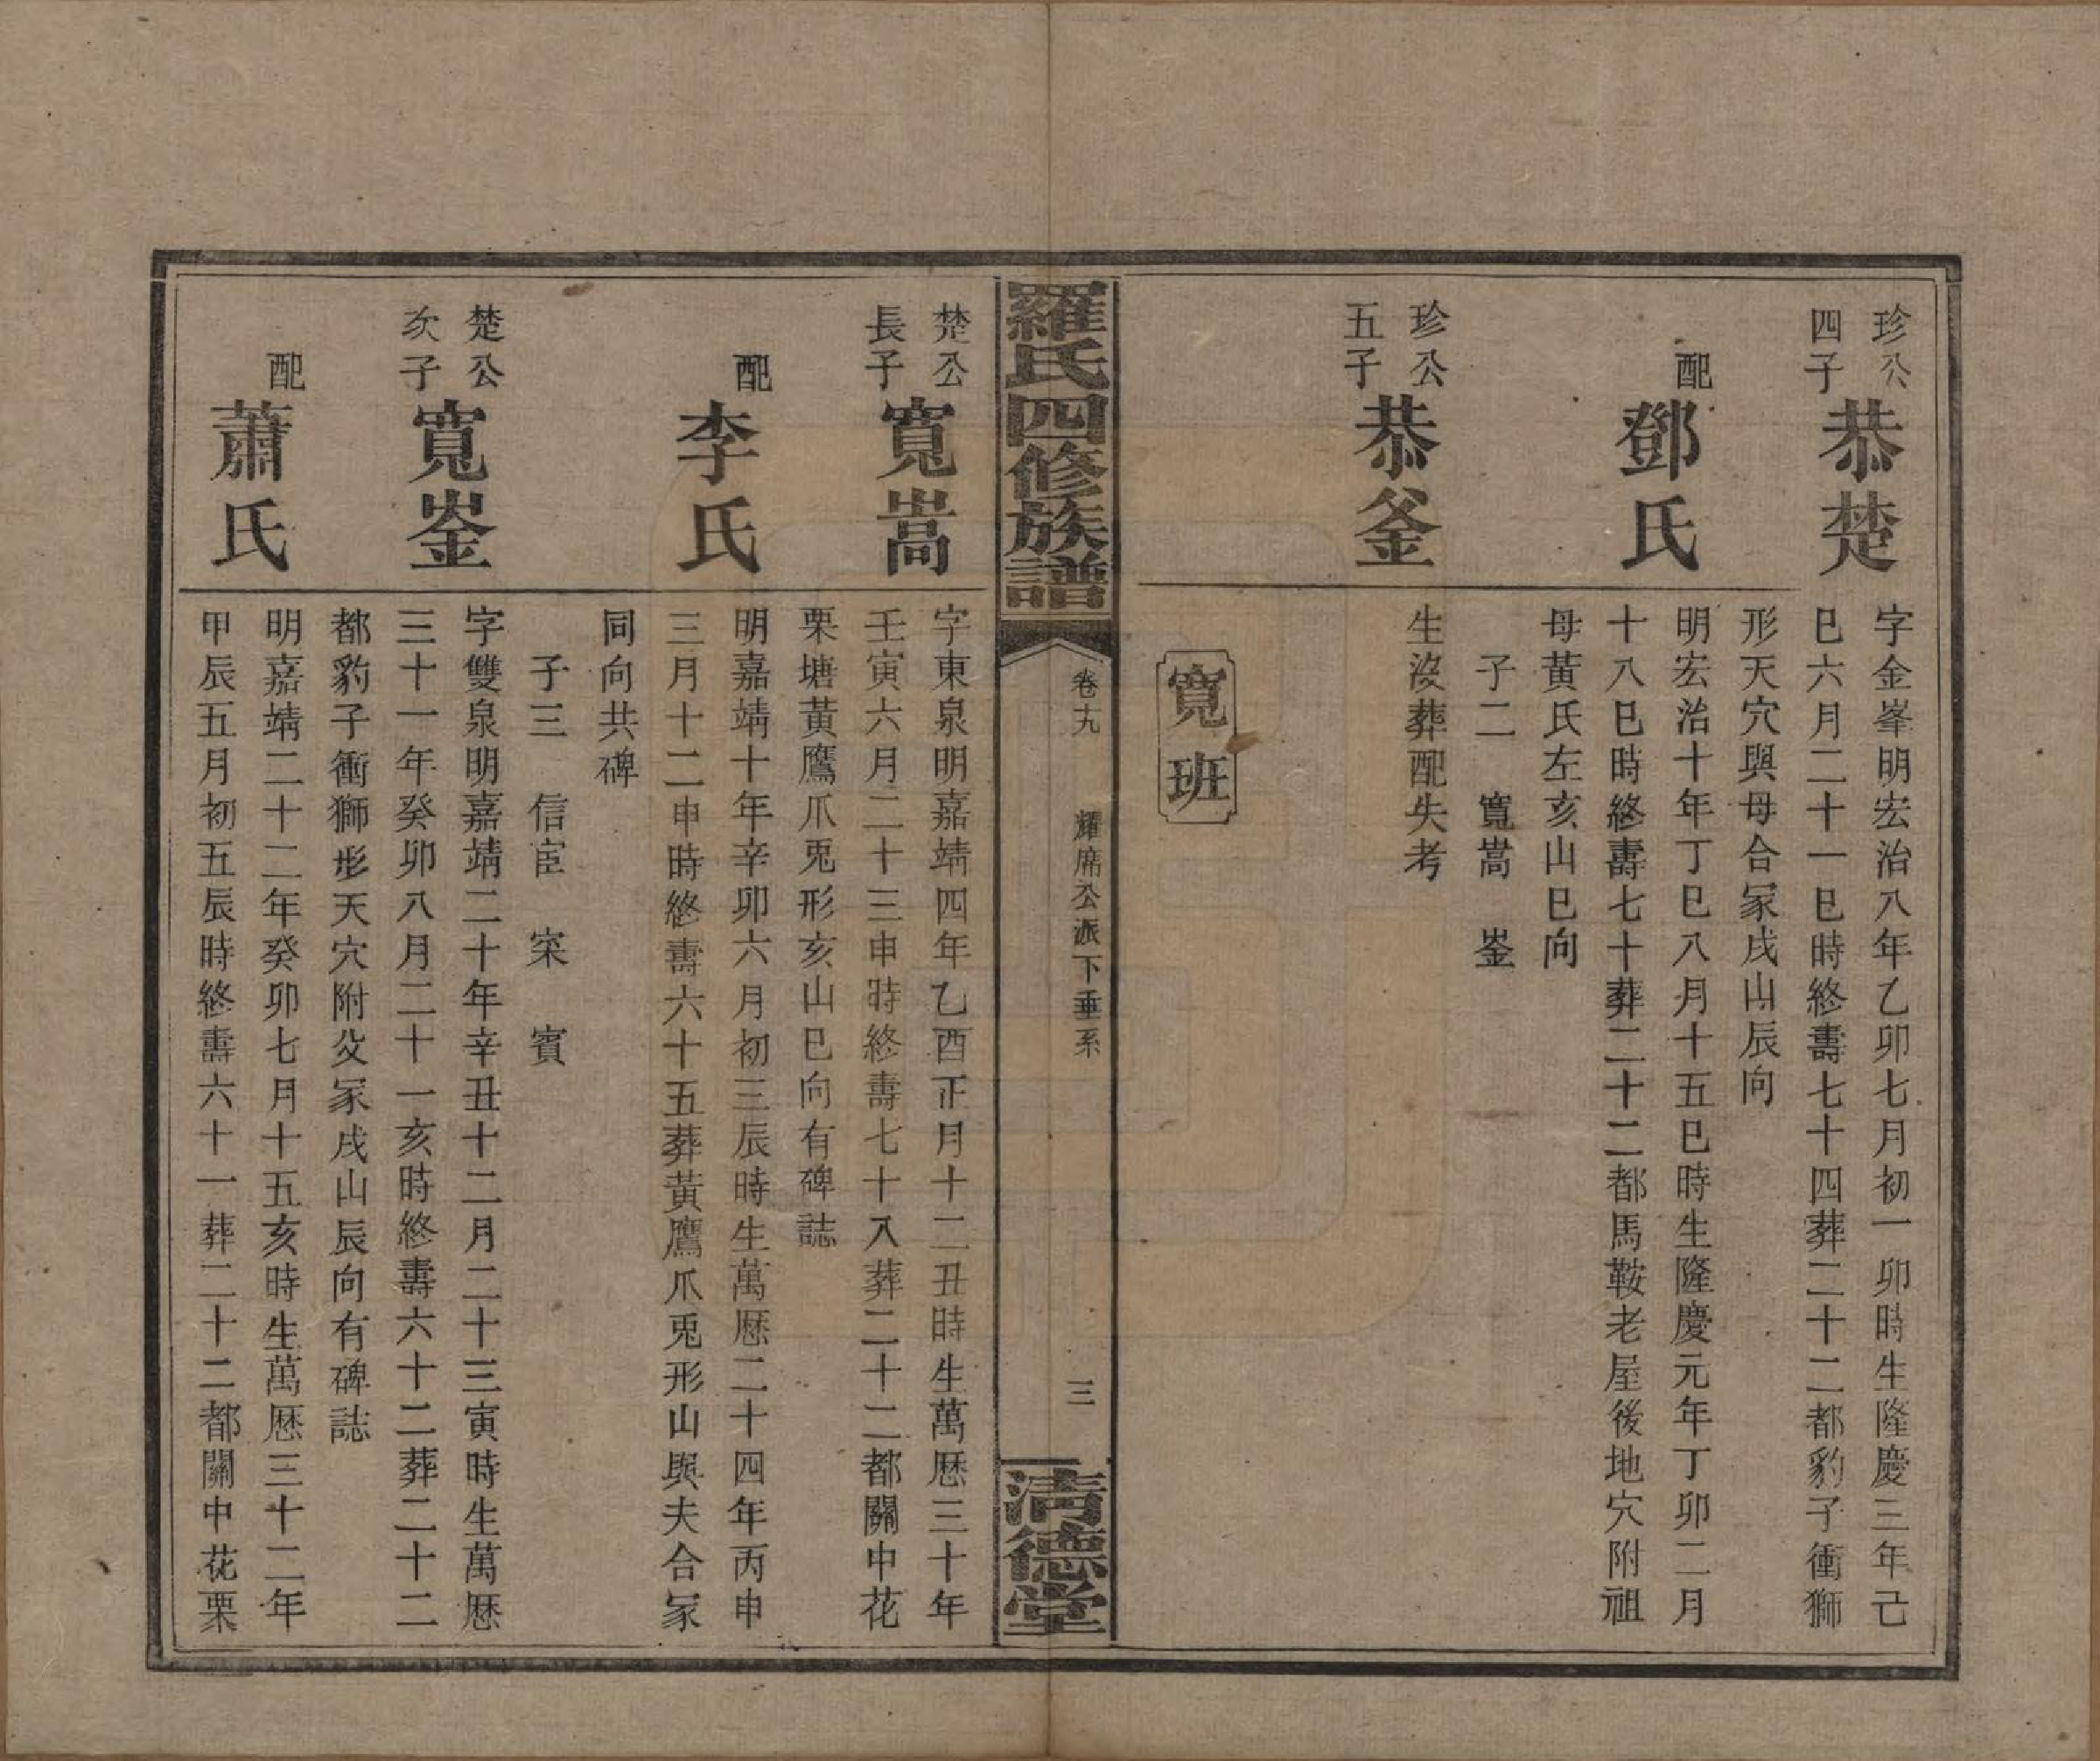 珍公
四子
恭楚
字金峯明宏治八年乙卯七月初一卯時生隆慶三年己
巳六月二十一巳時終壽七十四葬二十二都豹子衝獅
形天穴與母合冢戌山辰向
配
鄧氏
明宏治十年丁巳八月十五巳時生隆慶元年丁卯二月
十八巳時終壽七十葬二十二都馬鞍老屋後地穴附祖
母黄氏左亥山巳向
子二 寬嵩 崟
珍公
五子
恭釜
生沒葬配失考
寬班
羅氏四修族譜
卷九 耀席公派下垂系
三
清德堂
楚公
長子
寬嵩
字東泉明嘉靖四年乙酉正月十二丑時生萬歷三十年
壬寅六月二十三申時終壽七十八葬二十二都關中花
栗塘黃鷹爪兎形亥山巳向有碑誌
配
李氏
明嘉靖十年辛卯六月初三辰時生萬歷二十四年丙申
三月十二申時終壽六十五葬黃鷹爪兎形山與夫合冢
同向共碑
子三 信宦 寀 賓
楚公
次子
寬崟
字雙泉明嘉靖二十年辛丑十二月二十三寅時生萬歷
三十一年癸卯八月二十一亥時終壽六十二葬二十二
都豹子衝獅形天穴附父冢戌山辰向有碑誌
配
蕭氏
明嘉靖二十二年癸卯七月十五亥時生萬歷三十二年
甲辰五月初五辰時終壽六十一葬二十二都關中花栗